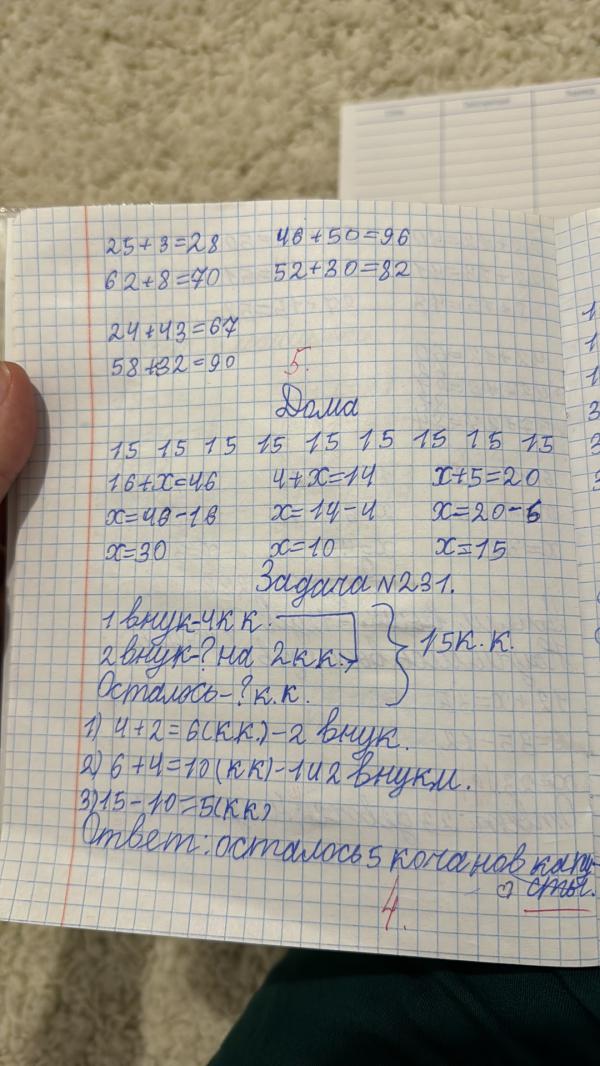 25+3=28 46+50=96
62+8=70 52+30=82
24+43=67
58+32=90
5.
Дома
15 15 15 15 15 15 15 15 15
16+х=46 4+х=14 х+5=20
х=46-16 х=14-4 х=20-5
х=30 х=10 х=15
Задача №231.
1 внук-4к к.
2 внук-? на 2кк.
15к.к.
Осталось-?к.к.
1) 4+2=6(кк.)-2 внук.
2) 6+4=10(кк)-1 и 2 внуки.
3)15-10=5(кк)
Ответ: осталось 5 кочанов капу-
сты.
4.